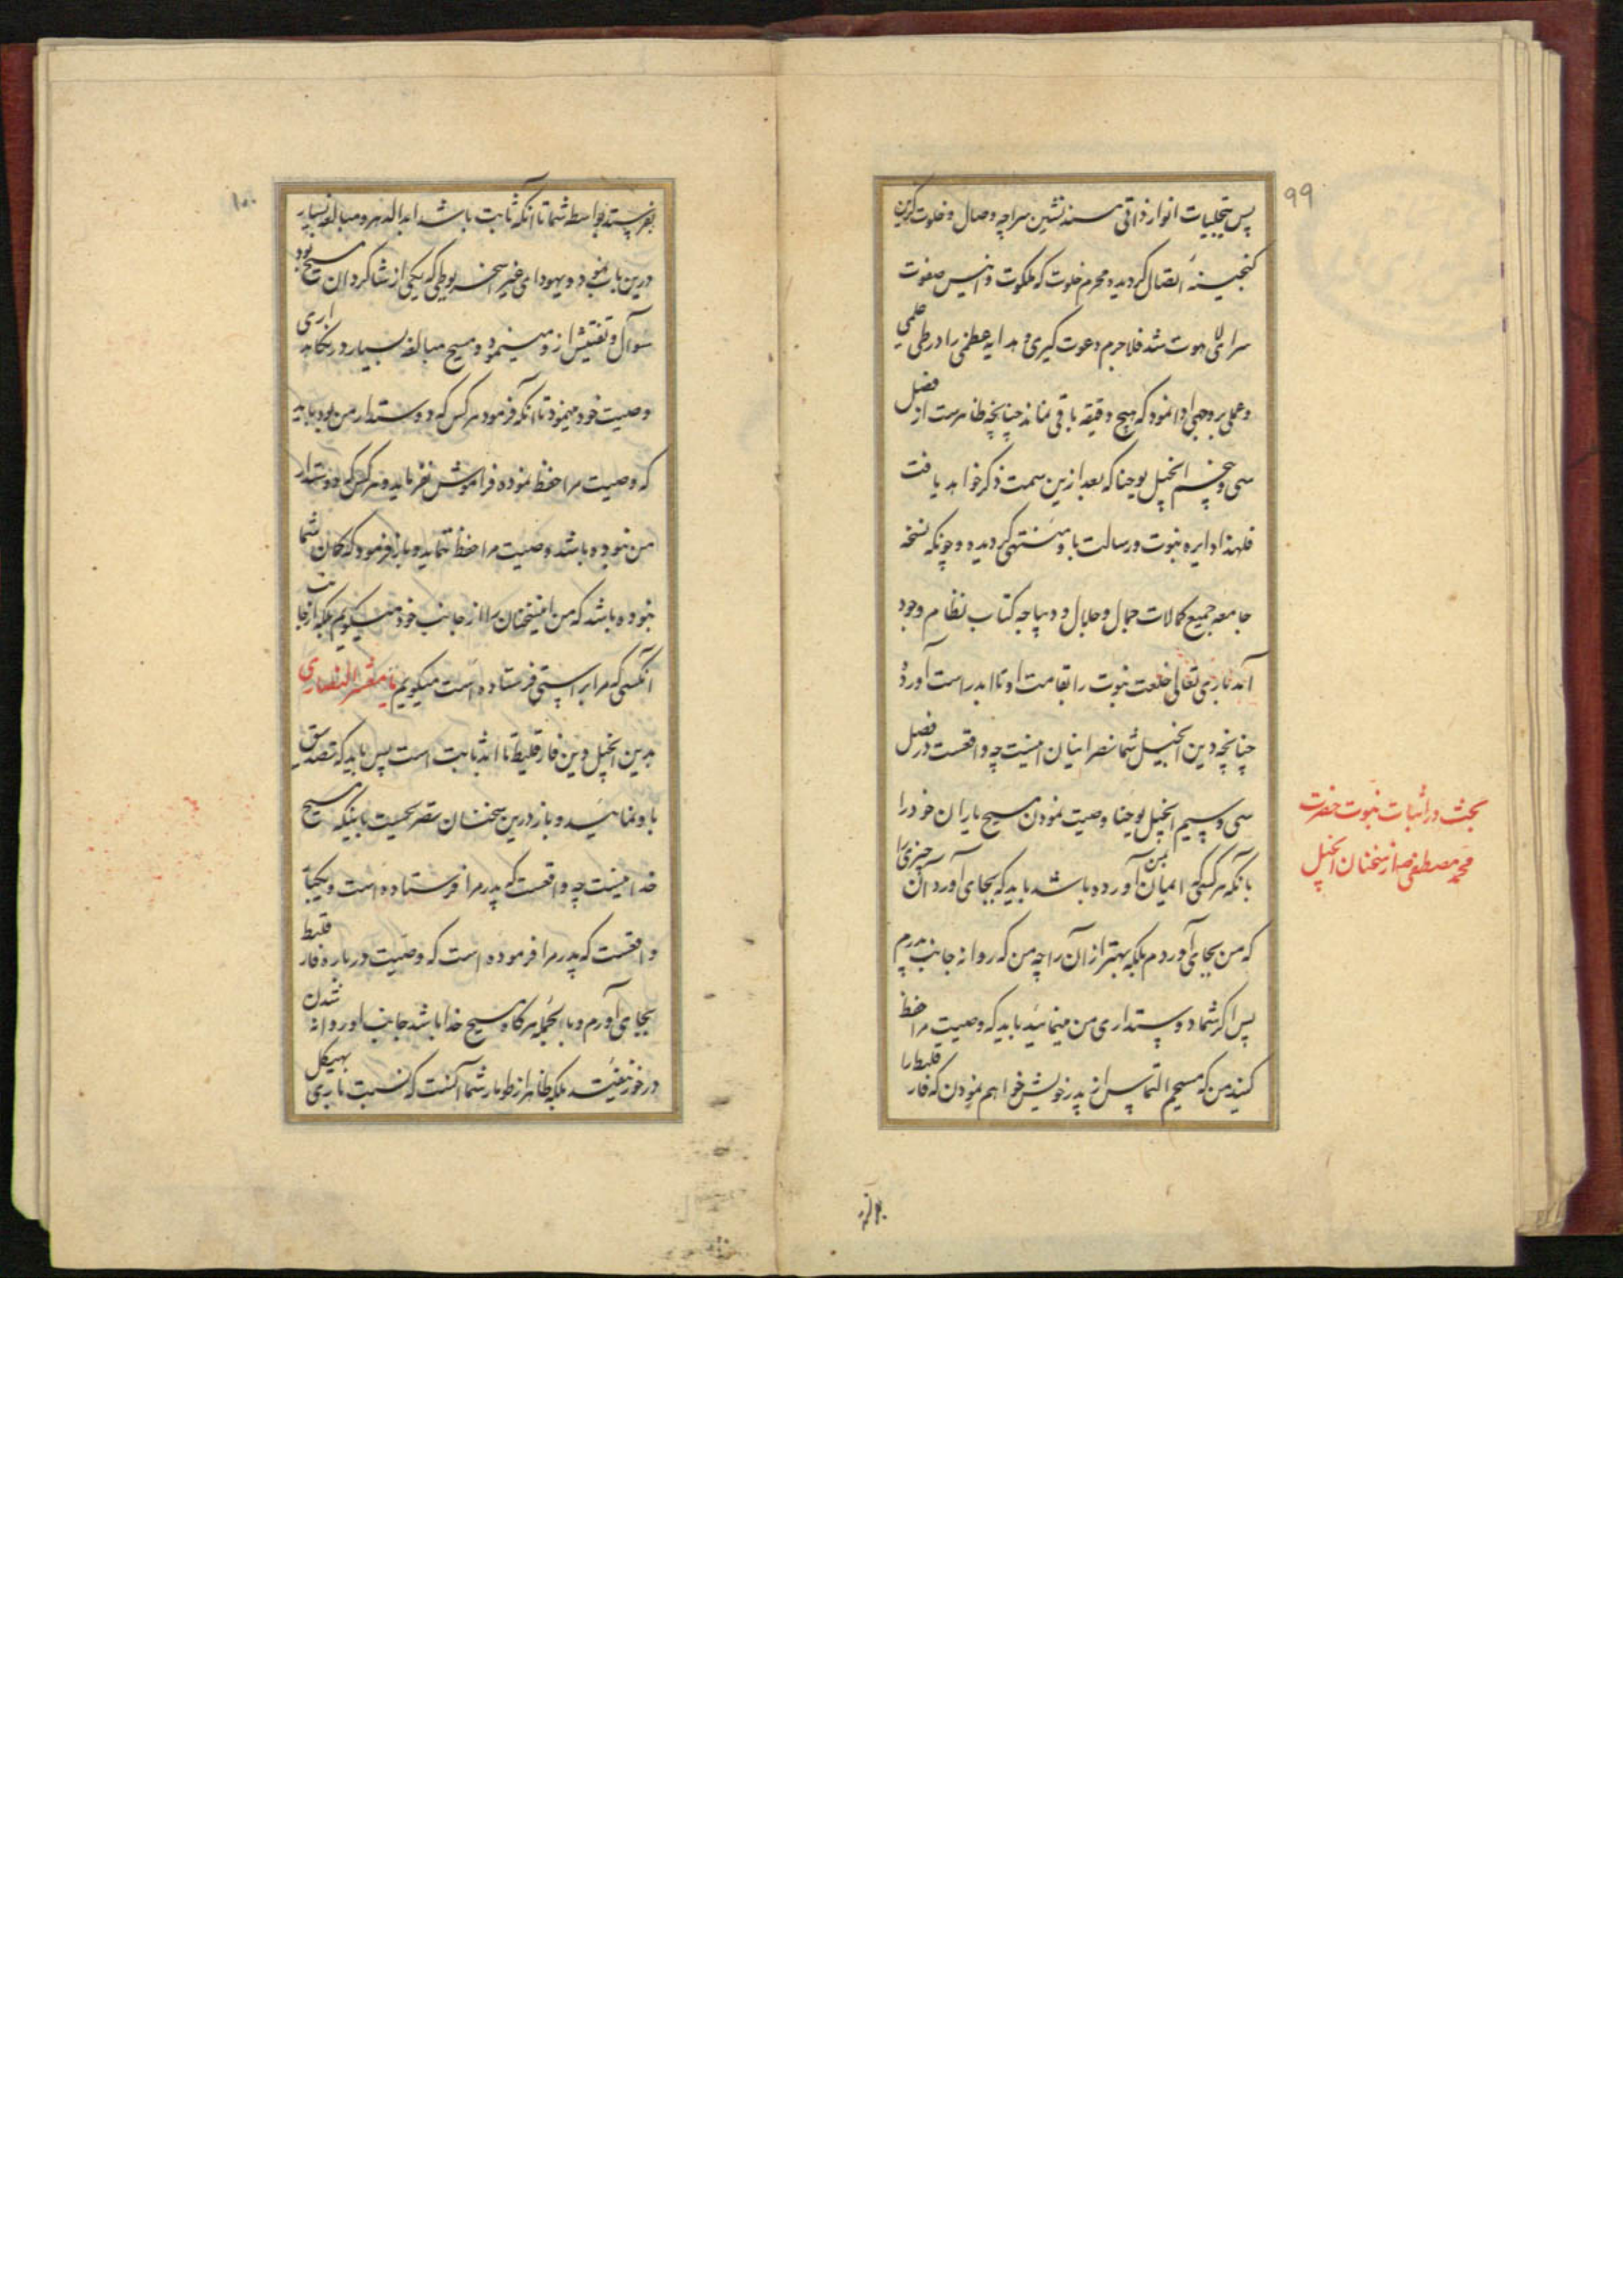 99
پس بتجلیات انوار ذاتی مسند نشین سراچه وصال و خلوت گزین
گنجینهٔ اتصال گردیده و محرم خلوت که ملکوت و انیس صفوت
سرای لاهوت شد فلا جرم دعوت کبری و هدایه عظمی را در طی علمی
و عملی بر وجهی ادا نمود که هیچ دقیقه باقی نماند چنانچه ظاهرست از فضل
سی و پنجم انجیل یوحنا که بعد ازین سمت ذکر خواهد یافت
فلهذا دایره نبوت و رسالت باو منتهی گردیده و چونکه نسخه
جامعه جمیع کمالات جمال و جلال و دیباچه کتاب نظام وجود
آمد باری تعالی خلعت نبوت را بقامت او تا ابد راست آورد
چنانچه درین انجیل شما نصرانیان اینست چه واقعست در فصل
سی و سیم انجیل یوحنا وصیت نمودن مسیح یاران خود را
بآنکه هر کسی که ایمان بمن آورده باشد باید که بجای آورد آن چیزی را
که من بجای آوردم بلکه بهتر از آن را چه من که روانه جانب پدرم
پس اگر شما دوستداری من مینمائید باید که وصیت مرا حفظ
کنید من که مسیحم التماس از پدر خویش خواهم نمودن که فار قلیط را
بحث در اثبات نبوت حضرت
محمد مصطفی ص از سخنان انجیل
۱۰۰
بفرستد بواسطه شما تا آنکه ثابت باشد ابد الدهر و مبالغه بسیار
درین باب نمود و یهودای غیر سخریوطی که یکی از شاگردان مسیح بود
سؤال و تفتیش از و مینمود و مسیح مبالغه بسیار در نگاهداری
وصیت خود مینمود تا آنکه فرمود هر کس که دوستدار من بود باید
که وصیت مرا حفظ نموده فراموش نفرماید و هر کس که دوستدار
من نبوده باشد وصیت مرا حفظ ننماید و باز فرمود که گمان شما
نبوده باشد که من این سخنان را از جانب خود میگویم بلکه از جانب
آنکسی که مرا براستی فرستاده است میگویم یا معشر النصاری
بدین انجیل دین فارقلیط تا ابد ثابت است پس باید که تصدیق
باو نمائید و باز درین سخنان تصریحیست باینکه مسیح
خدا نیست چه واقعست که پدر مرا فرستاده است و یکجا
واقعست که پدر مرا فرموده است که وصیت درباره فارقلیط
بجای آورم و بالجمله هرگاه مسیح خدا باشد جانب او روانه شدن
در خور نیفتد بلکه ظاهر از طومار شما آنست که نسبت باری بهیکل